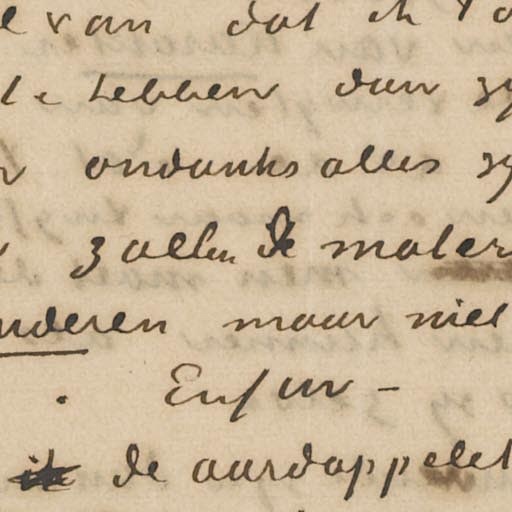 van dat ik
te hebben dan zy
ondanks alles zy
zullen de maler
nderen maar niet
. Enfin -
de aardappelet